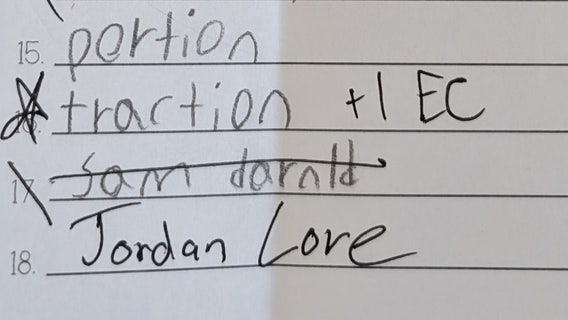 15. portion
traction +1 EC
17. Sam darnld
18. Jordan Love